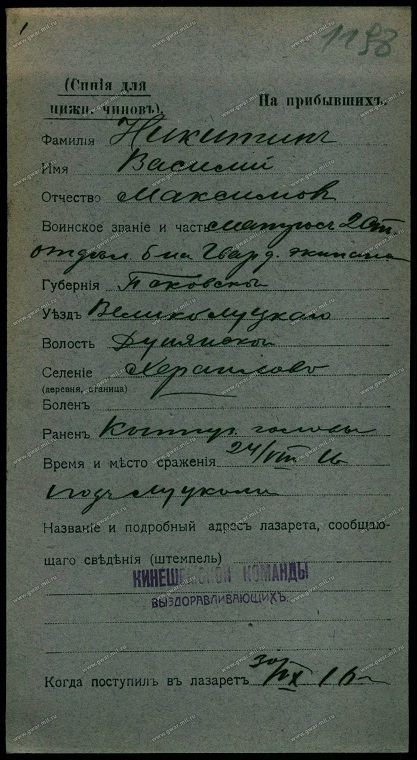 1193
(Синія для
нижн. чиновъ).
На прибывшихъ.
Фамилія Никитинъ
Имя Василий
Отчество Максимов
Воинское званіе и часть матросъ 2 ст.
отдел. б-на Гвард. экипажа
Губернія Псковской
Уѣздъ Великолуцкаго
Волость
Селеніе
(деревня, станица)
Боленъ
Раненъ головы
Время и мѣсто сраженія 24/VIII 16
подъ Луцкомъ
Названіе и подробный адресъ лазарета, сообщаю-
щаго свѣдѣнія (штемпель)
КИНЕШЕМСКОЙ КОМАНДЫ
ВЫЗДОРАВЛИВАЮЩИХЪ.
Когда поступилъ въ лазаретъ 30/IX 16
www.gwar.mil.ru